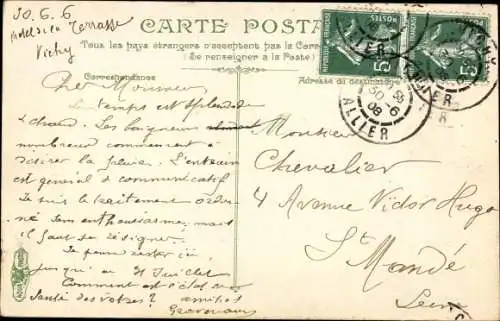 30.6.6
Hotel du Terrasse
Vichy
CARTE POSTA
Tous les pays étrangers n'acceptent pas la Corre
(Se renseigner à la Poste)
Correspondance
Adresse du destinataire
REPUBLIQUE FRANÇAISE
POSTES
5
5
ALLIER
30-6
08
ALLIER
Cher Monsieur
Le temps est splendide
& chaud. Les baigneurs
nombreux commencent à
désirer la pluie. L'entrain
est general & communicatif
Je suis le traitement ordon-
né sans enthousiasme, mais
il faut se résigner.
Je pense rester ici
jusqu'au 21 Juillet
Comment est l'état de
santé des votres? amitiés
Monsieur
Chevalier
4 Avenue Victor Hugo
St Mandé
Seine